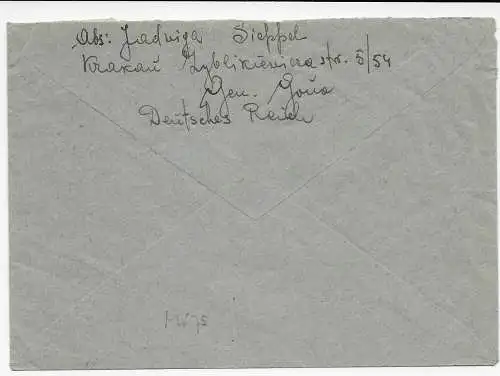 Abs: Jadwiga Sieppel
Krakau Zyblikiewicza str. 5/54
Gen. Gouv
Deutsches Reich